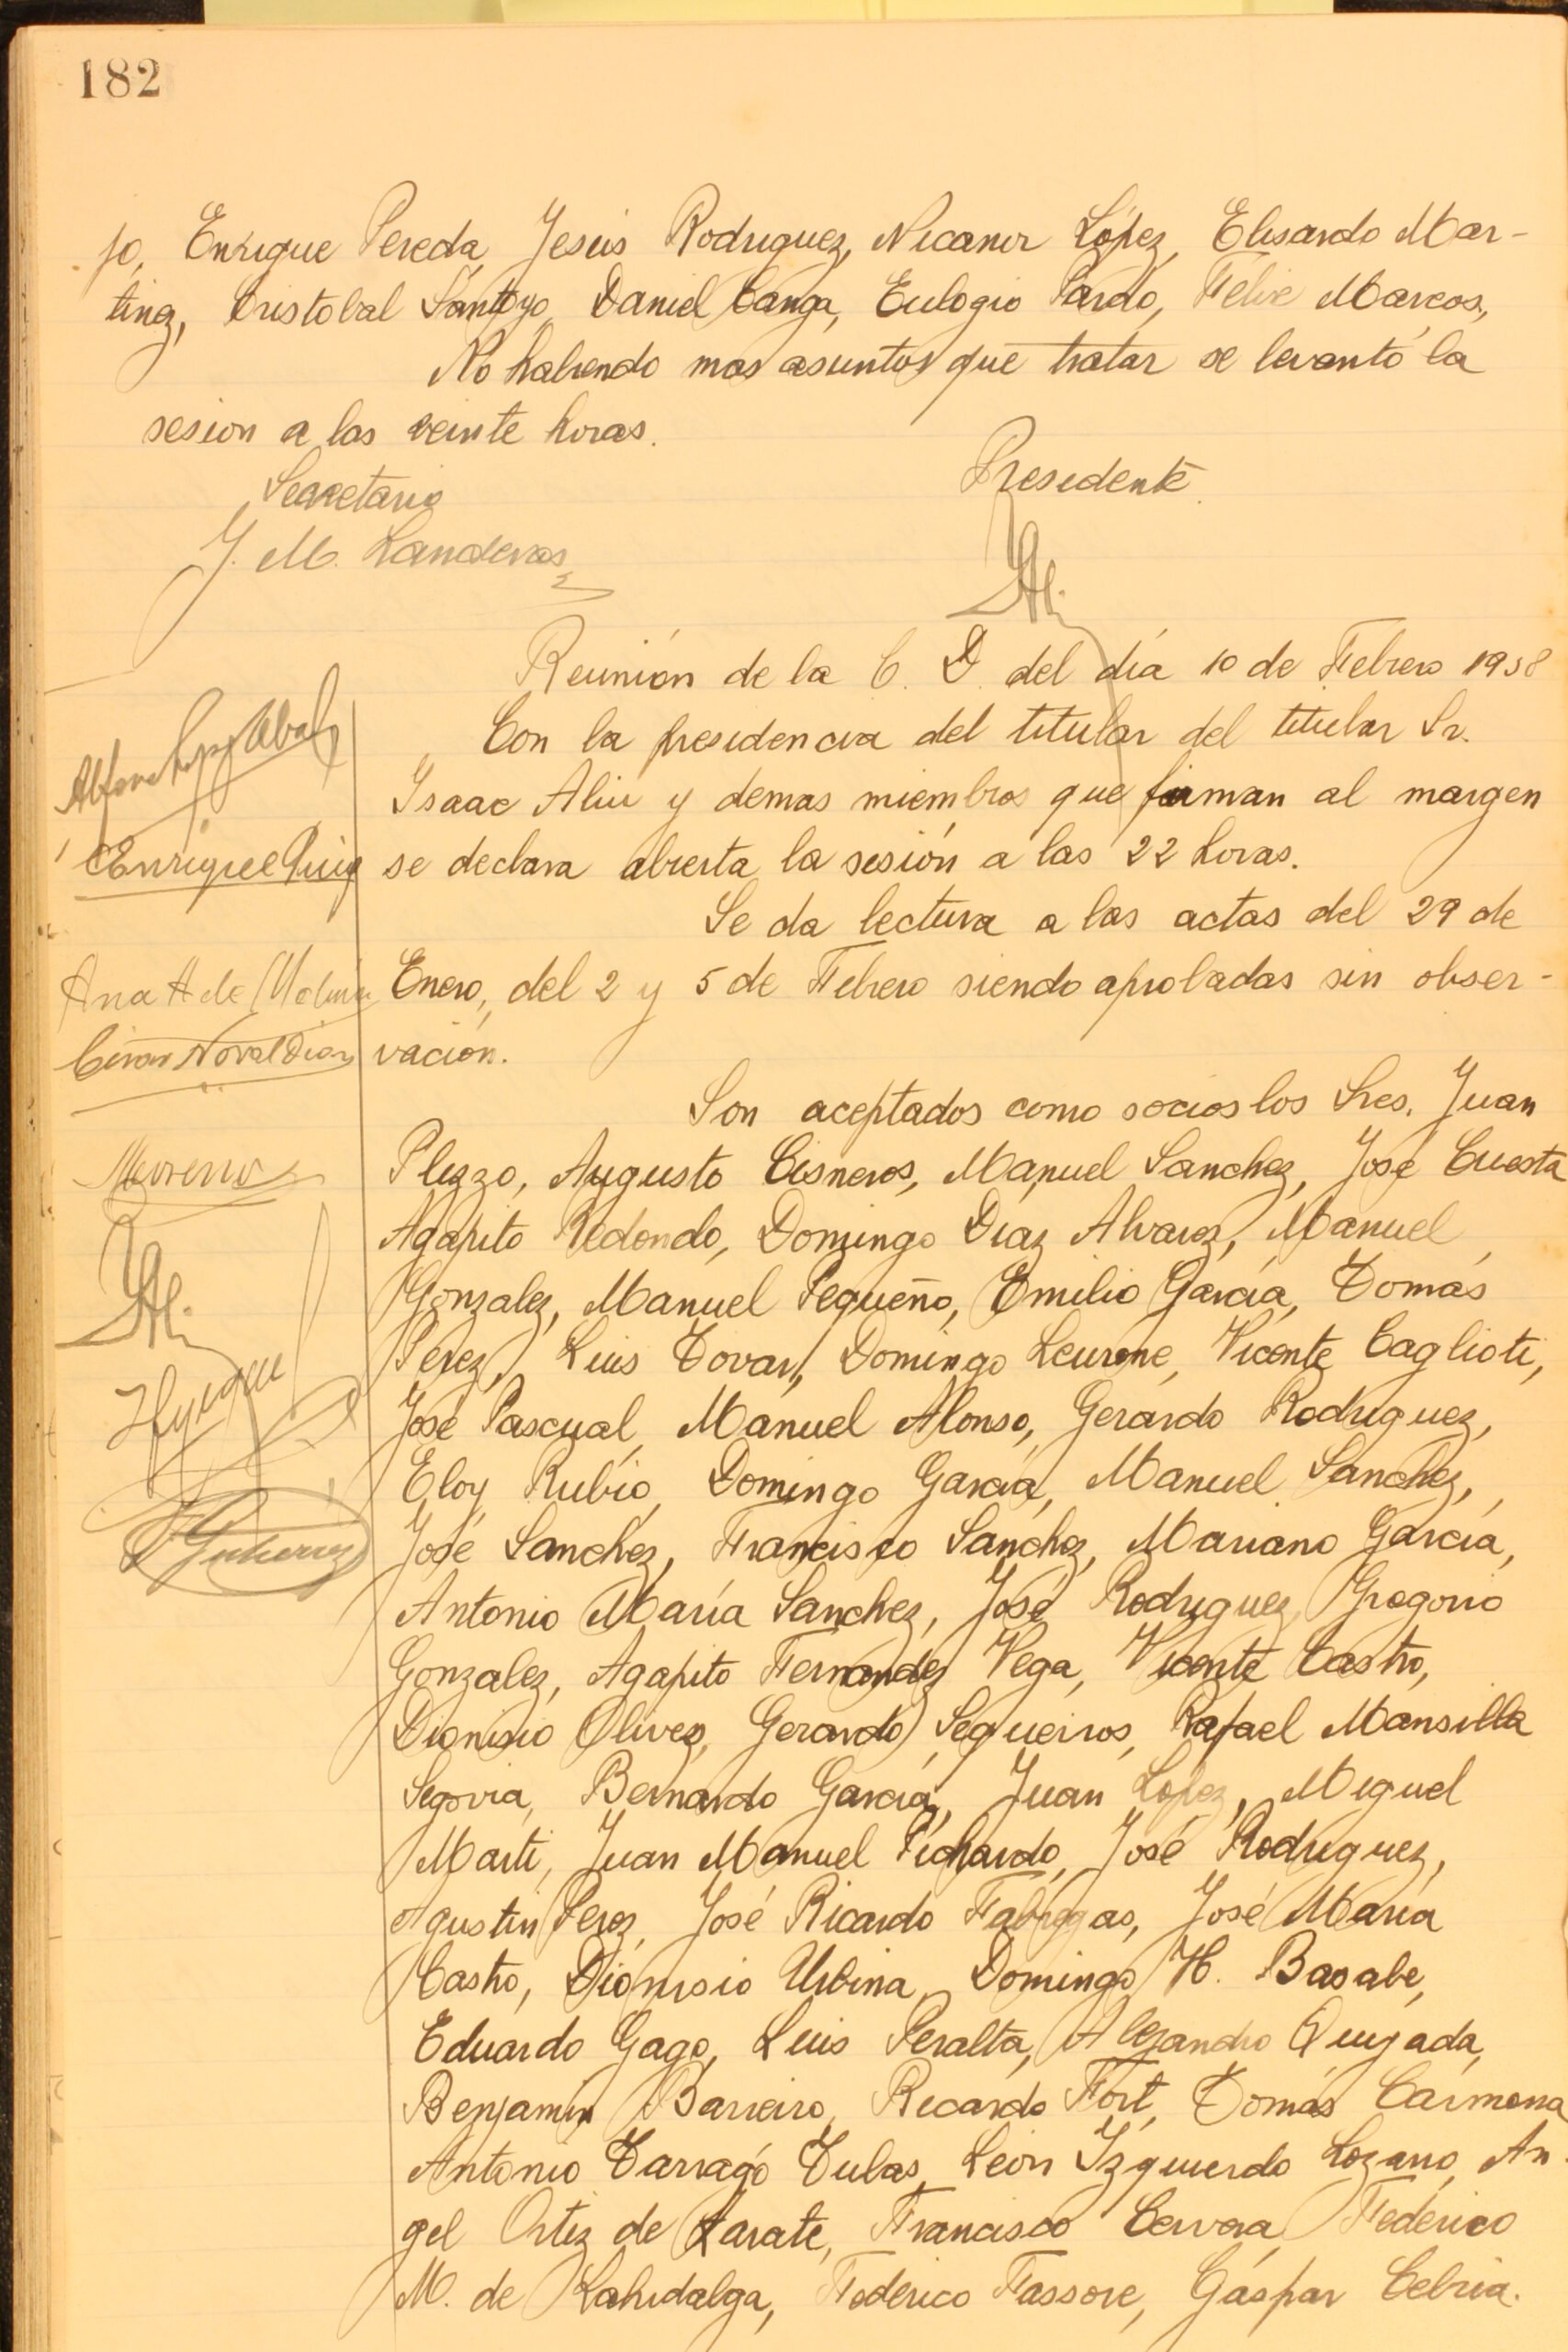 182
jo, Enrique Pereda, Jesús Rodriguez, Nicanor López, Elisardo Mar-
tinez, Cristobal Santoyo, Daniel Canga, Eulogio Pardo, Felix Marcos,
No habiendo mas asuntos que tratar se levantó la
sesion a las veinte horas.
Secretario
Presidente
J. M. Landeras
Reunión de la C. D. del día 10 de Febrero 1938
Con la presidencia del titular del titular Sr.
Isaac Aliu y demas miembros que firman al margen
Enrique Puig
se declara abierta la sesión a las 22 horas.
Se da lectura a las actas del 29 de
Ana A de Molina
Enero, del 2 y 5 de Febrero siendo aprobadas sin obser-
vación.
Son aceptados como socios los Sres. Juan
Moreno
Plizzo, Augusto Cisneros, Manuel Sanchez, José Cuesta
Agapito Redondo, Domingo Diaz Alvarez, Manuel
Gonzalez, Manuel Pequeño, Emilio García, Tomás
Perez, Luis Tovar, Domingo Leurone, Vicente Caglioti,
José Pascual, Manuel Alonso, Gerardo Rodriguez,
Eloy Rubio, Domingo García, Manuel Sanchez,
José Sanchez, Francisco Sanchez, Mariano García,
Antonio María Sanchez, José Rodriguez, Gregorio
Gonzalez, Agapito Fernandez Vega, Vicente Castro,
Dionisio Olivez, Gerardo Sequeiros, Rafael Mansilla
Segovia, Bernardo García, Juan López, Miguel
Marti, Juan Manuel Pichardo, José Rodriguez,
Agustin Perez, José Ricardo Fabregas, José María
Castro, Dionisio Urbina, Domingo H. Basabe,
Eduardo Gago, Luis Peralta, Alejandro Quijada,
Benjamin Barreiro, Ricardo Fort, Tomás Carmona
Antonio Tarragó Tulas, León Izquierdo Lozano, An-
gel Ortiz de Zarate, Francisco Cervera, Federico
M. de Lahidalga, Federico Fassore, Gaspar Cebria.